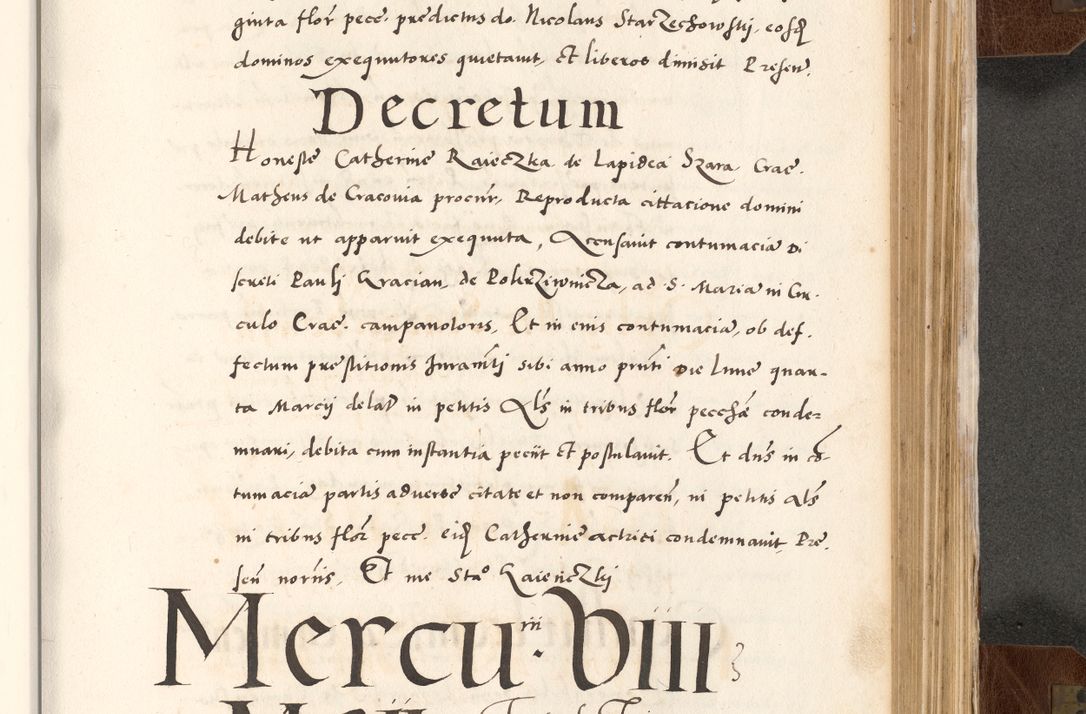 ginta flor pecc. predictus do. Nicolaus StarZechowskij. eosd
dominos exequutores quietauit, et liberos dimisit Presen.
Decretum
Honeste Catherine RaieczKa de Lapidea Szara. Crac.
Matheus de Cracouia procur, Reproducta cittacione domini
debite ut apparuit exequuta, Accusauit contumacia Di
screti Pauli Gracian, de PokrZiwnicZa, ad S. Maria in Cir.
culo Crac. campanotoris, Et in eius contumacia, ob def.
fectum prestitionis Juramti sibi anno prnti Die Lune quar-
ta Marcij delat in petitis Als in tribus flor pecche conde-
mnari, debita cum instantia peciit et postulauit. Et dns in co
tumacia partis aduerse citate et non comparen, in petitis als
in tribus flor pecc. eid Catherine actrici condemnauit Pre.
sen nornis. Et me Stao GaienicZkij
Mercu. Viii
rii
Maii